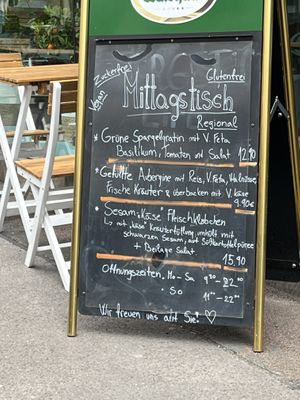 Zuckerfrei
Glutenfrei
Vegan
Mittagstisch
Regional
* Grüne Spargelgratin mit V. Feta
Basilikum, Tomaten und Salat 12,90
* Gefüllte Aubergine mit Reis, V. Feta, Walnüsse
Frische Kräuter & überbacken mit V. Käse
9,90€
* Sesam "Käse" Fleischklöbchen
↳ mit "Käse" Kräuterfüllung, umhüllt mit
schwarzen Sesam, auf Süßkartoffelpüree
+ Beilage Salat
15,90
Öffnungszeiten: Mo - Sa 9³⁰ - 22⁰⁰
· So
11⁰⁰ - 22⁰⁰
Wir freuen uns auf Sie! ♡